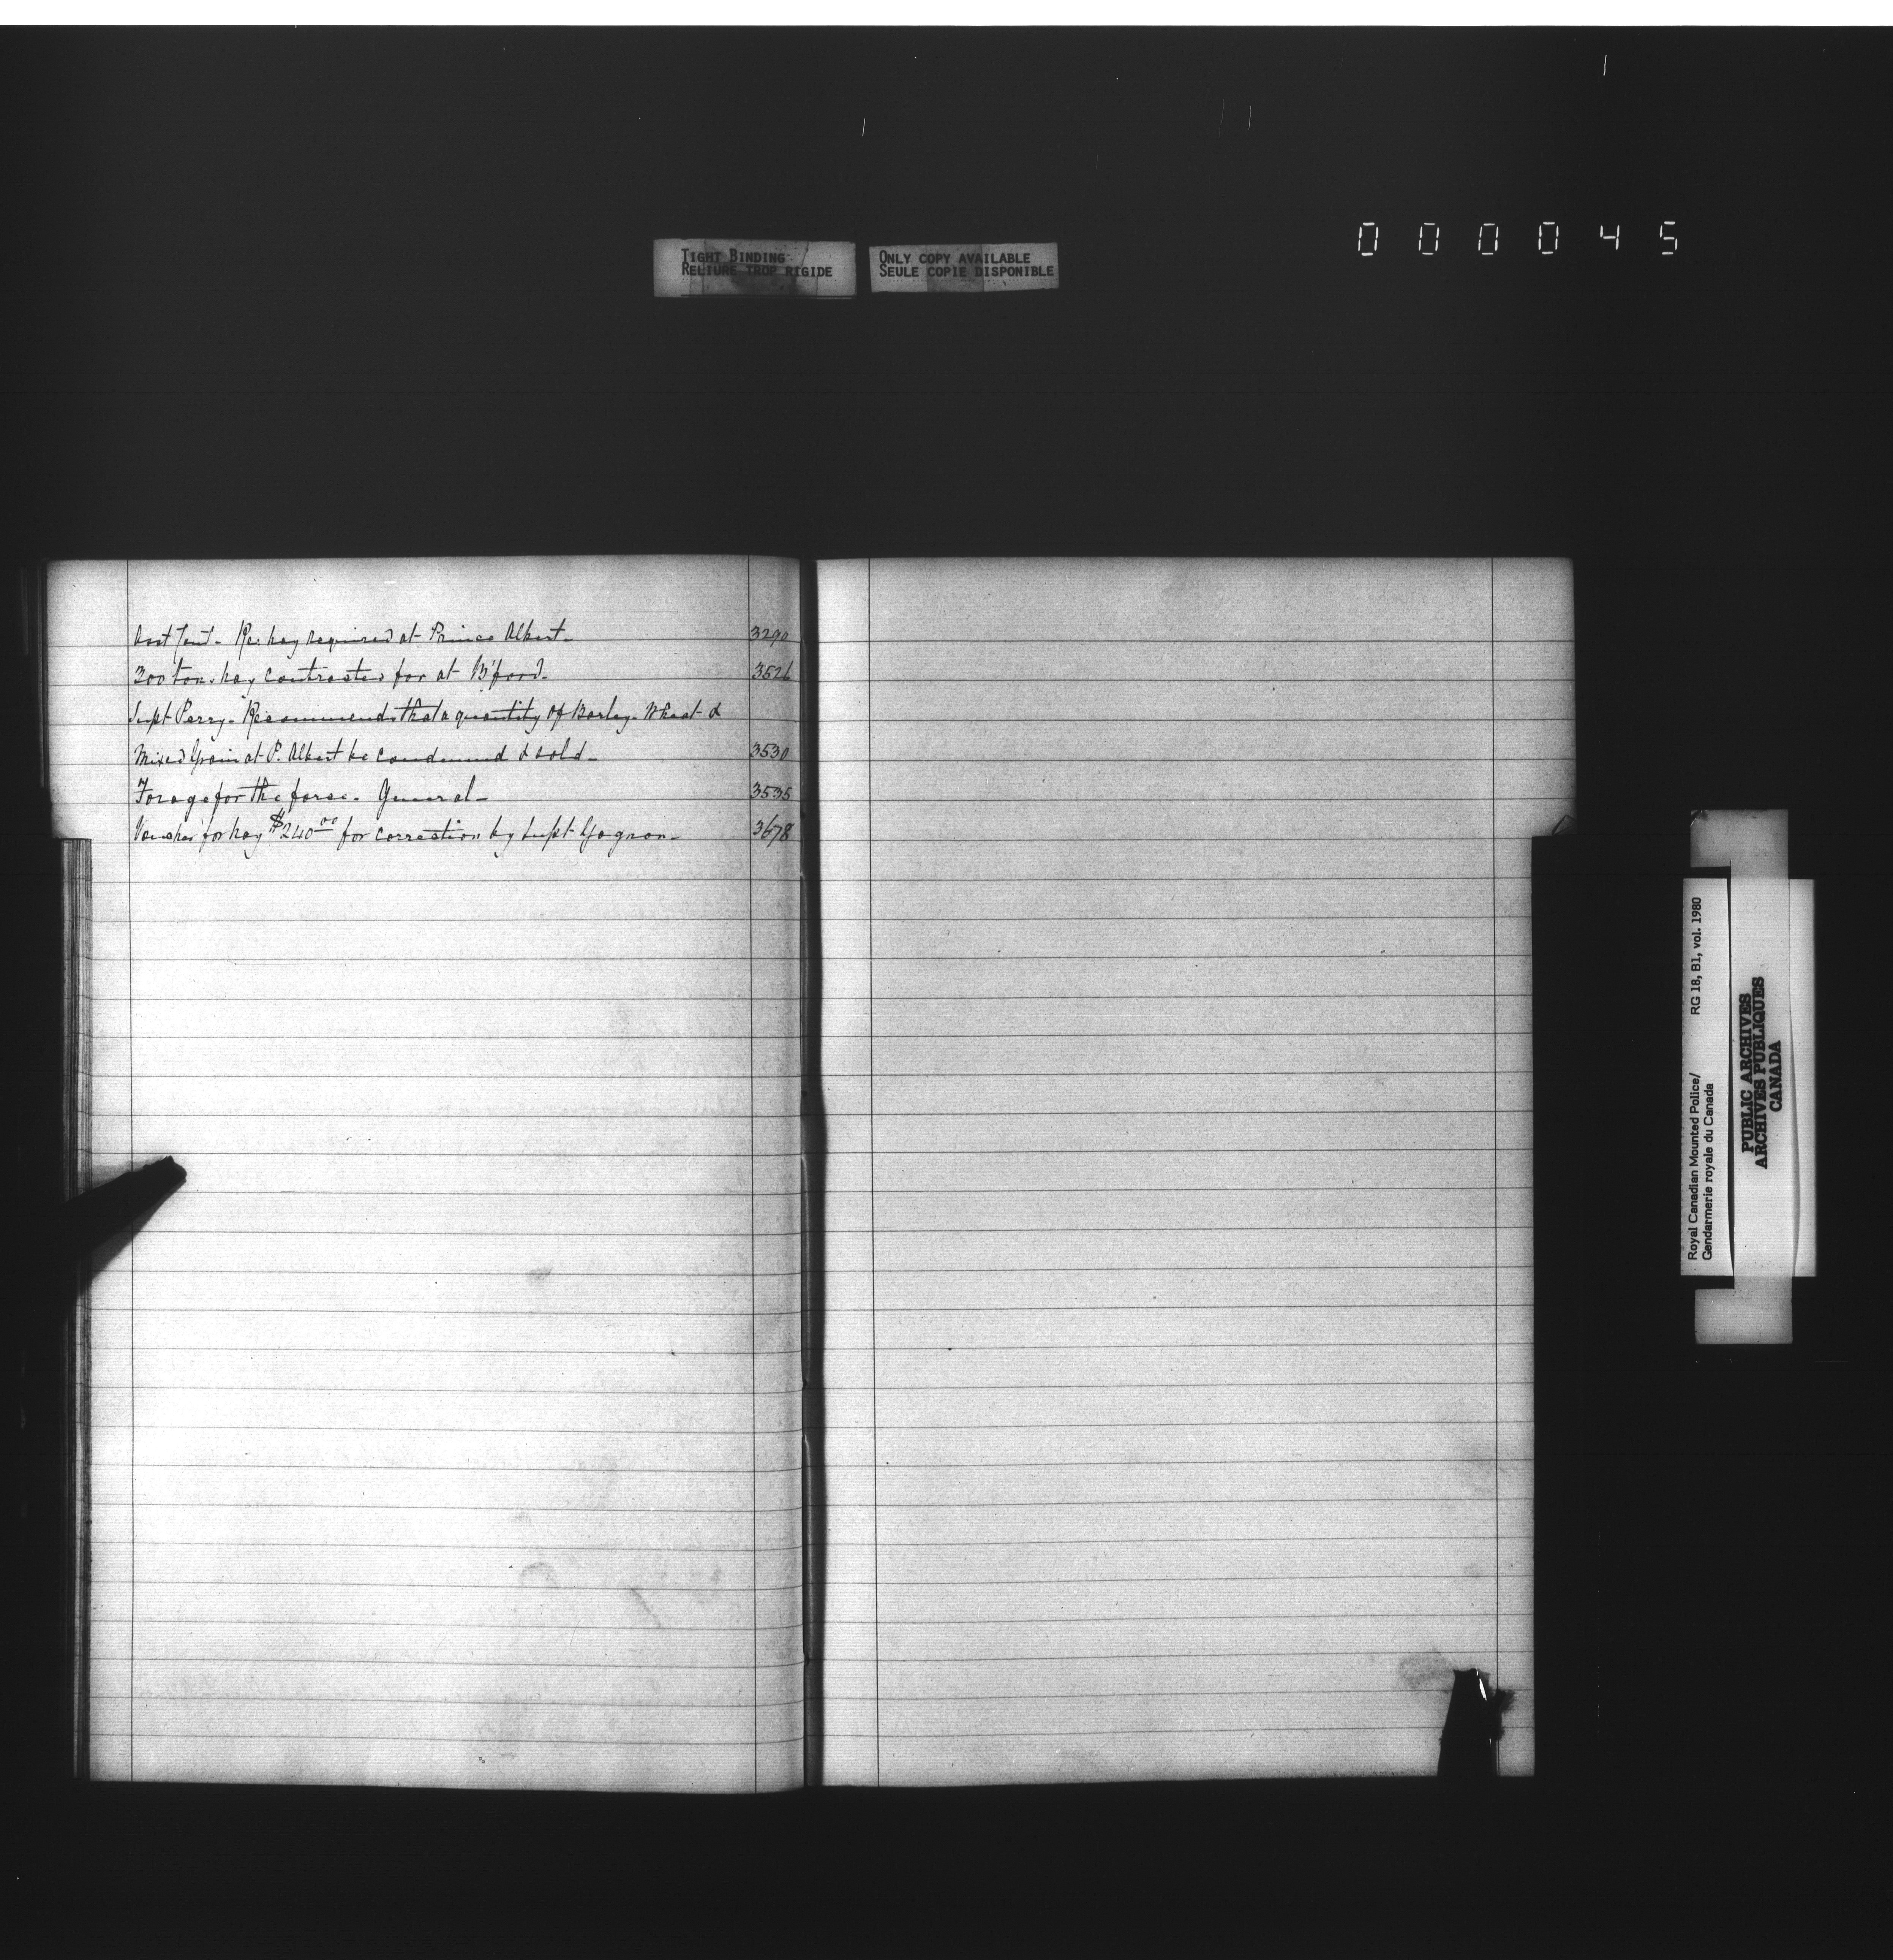 000045
TIGHT BINDING
RELIURE TROP RIGIDE
ONLY COPY AVAILABLE
SEULE COPIE DISPONIBLE
Re: hay required at Prince Albert- 3290
300 tons hay contracted for at B'ford- 3526
Supt Perry- Recommends that a quantity of Barley- Wheat &
Mixed Grain at P. Albert be condemned & sold- 3530
Forage for the force- General- 3535
Voucher for hay $240.00 for correction by Supt Gagnon- 3678
Royal Canadian Mounted Police/ RG 18, B1, vol. 1980
Gendarmerie royale du Canada
PUBLIC ARCHIVES
ARCHIVES PUBLIQUES
CANADA